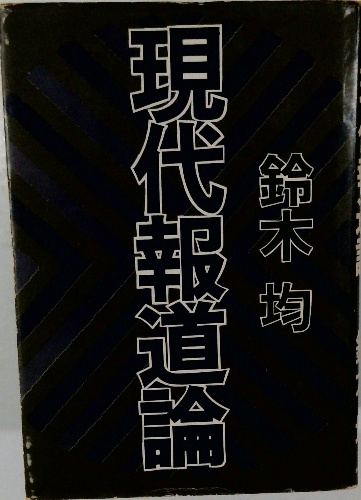 現代報道論
鈴木 均